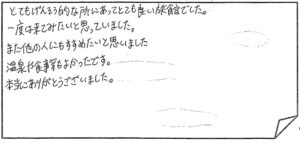 とてもげんそう的な所にあってとても良い旅館でした。
一度は来てみたいと思っていました。
また他の人にもすすめたいと思いました
温泉や食事もよかったです。
本当にありがとうございました。